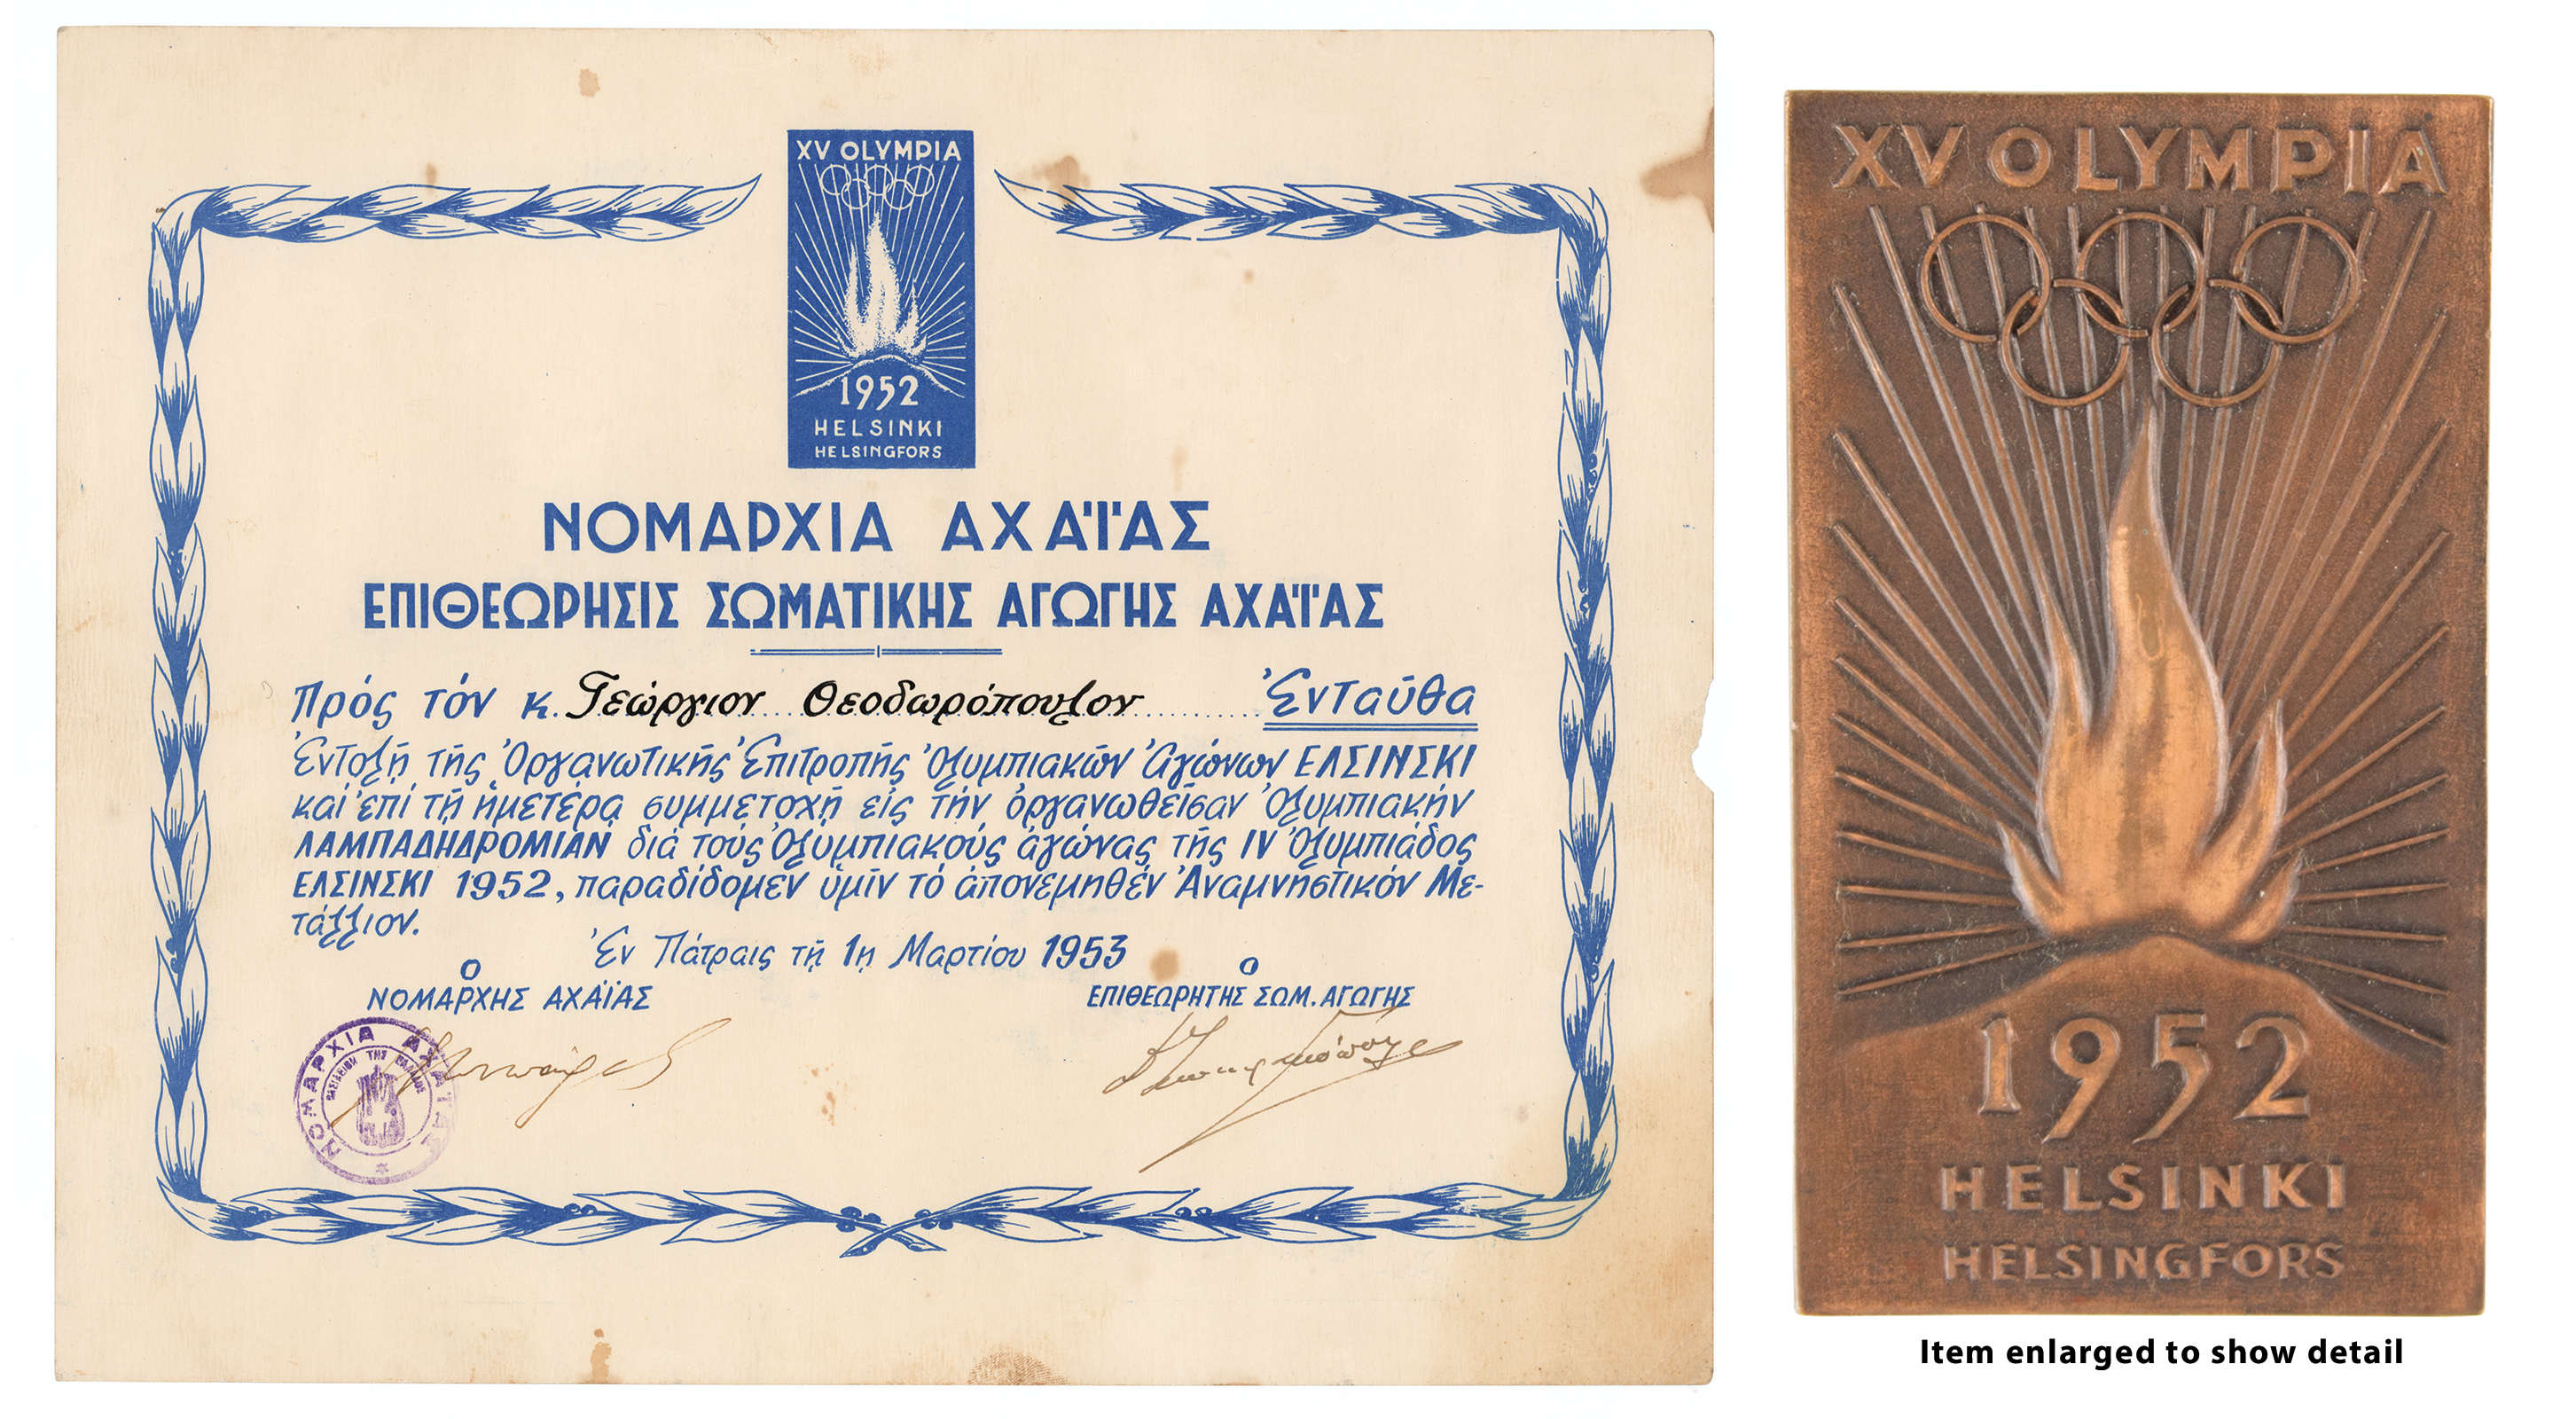 XV OLYMPIA
1952
HELSINKI
HELSINGFORS
ΝΟΜΑΡΧΙΑ ΑΧΑΪΑΣ
ΕΠΙΘΕΩΡΗΣΙΣ ΣΩΜΑΤΙΚΗΣ ΑΓΩΓΗΣ ΑΧΑΪΑΣ
Πρός τόν κ. Γεώργιον Θεοδωρόπουλον Ἐνταῦθα
Ἐντολῇ τῆς Ὀργανωτικῆς Ἐπιτροπῆς Ὀλυμπιακῶν Ἀγώνων ΕΛΣΙΝΣΚΙ
καί ἐπί τῇ ἡμετέρᾳ συμμετοχῇ εἰς τήν ὀργανωθεῖσαν Ὀλυμπιακήν
ΛΑΜΠΑΔΗΔΡΟΜΙΑΝ διά τούς Ὀλυμπιακούς ἀγώνας τῆς IV Ὀλυμπιάδος
ΕΛΣΙΝΣΚΙ 1952, παραδίδομεν ὑμῖν τό ἀπονεμηθέν Ἀναμνηστικόν Με-
τάλλιον.
Ἐν Πάτραις τῇ 1ῃ Μαρτίου 1953
Ο Ο
ΝΟΜΑΡΧΗΣ ΑΧΑΪΑΣ ΕΠΙΘΕΩΡΗΤΗΣ ΣΩΜ. ΑΓΩΓΗΣ
ΝΟΜΑΡΧΙΑ ΑΧΑΪΑΣ
ΒΑΣΙΛΕΙΟΝ ΤΗΣ ΕΛΛΑΔΟΣ
XV OLYMPIA
1952
HELSINKI
HELSINGFORS
Item enlarged to show detail